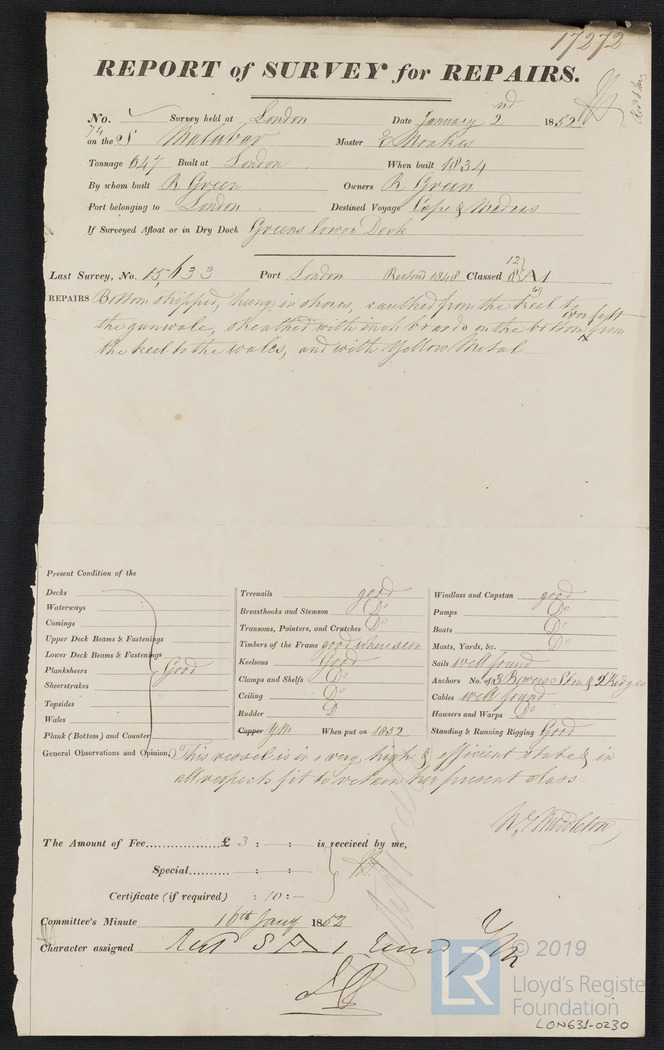 17272
REPORT of SURVEY for REPAIRS.
No. Survey held at London Date January 2nd 1852
74
on the S Malabar Master E Noakes
Tonnage 647 Built at London When built 1834
By whom built R Green Owners R Green
Port belonging to London Destined Voyage Cape & Madras
If Surveyed Afloat or in Dry Dock Greens lower Dock
Last Survey, No. 15,633 Port London Restored 1848 Classed 12 A 1
REPAIRS Bottom stripped, hung in shores, caulked from the keel to
the gunwale, sheathed with inch boards on the bottom over felt from
the keel to the wales, and with Yellow Metal
Present Condition of the
Decks
Waterways
Comings
Upper Deck Beams & Fastenings
Lower Deck Beams & Fastenings
Planksheers Good
Sheerstrakes
Topsides
Wales
Plank (Bottom) and Counter
Treenails good
Breasthooks and Stemson Do
Transoms, Pointers, and Crutches Do
Timbers of the Frame good where seen
Keelsons Good
Clamps and Shelfs Do
Ceiling Do
Rudder D
Copper YM When put on 1852
Windlass and Capstan good
Pumps Do
Boats Do
Masts, Yards, &c. Do
Sails well found
Anchors No. of 3 Bowers 1 Stm & 2 Kedges
Cables well found
Hawsers and Warps Do
Standing & Running Rigging Good
General Observations and Opinion, This vessel is in a very high & efficient state & in
all respects fit to retain her present class
Wm Middleton
The Amount of Fee £ 3 : - : - is received by me,
Special : - : -
Certificate (if required) : 10 : -
Committee's Minute 16th Jany 1852
Character assigned A 1
© 2019
LR
Lloyd's Register
Foundation
LON631-0230